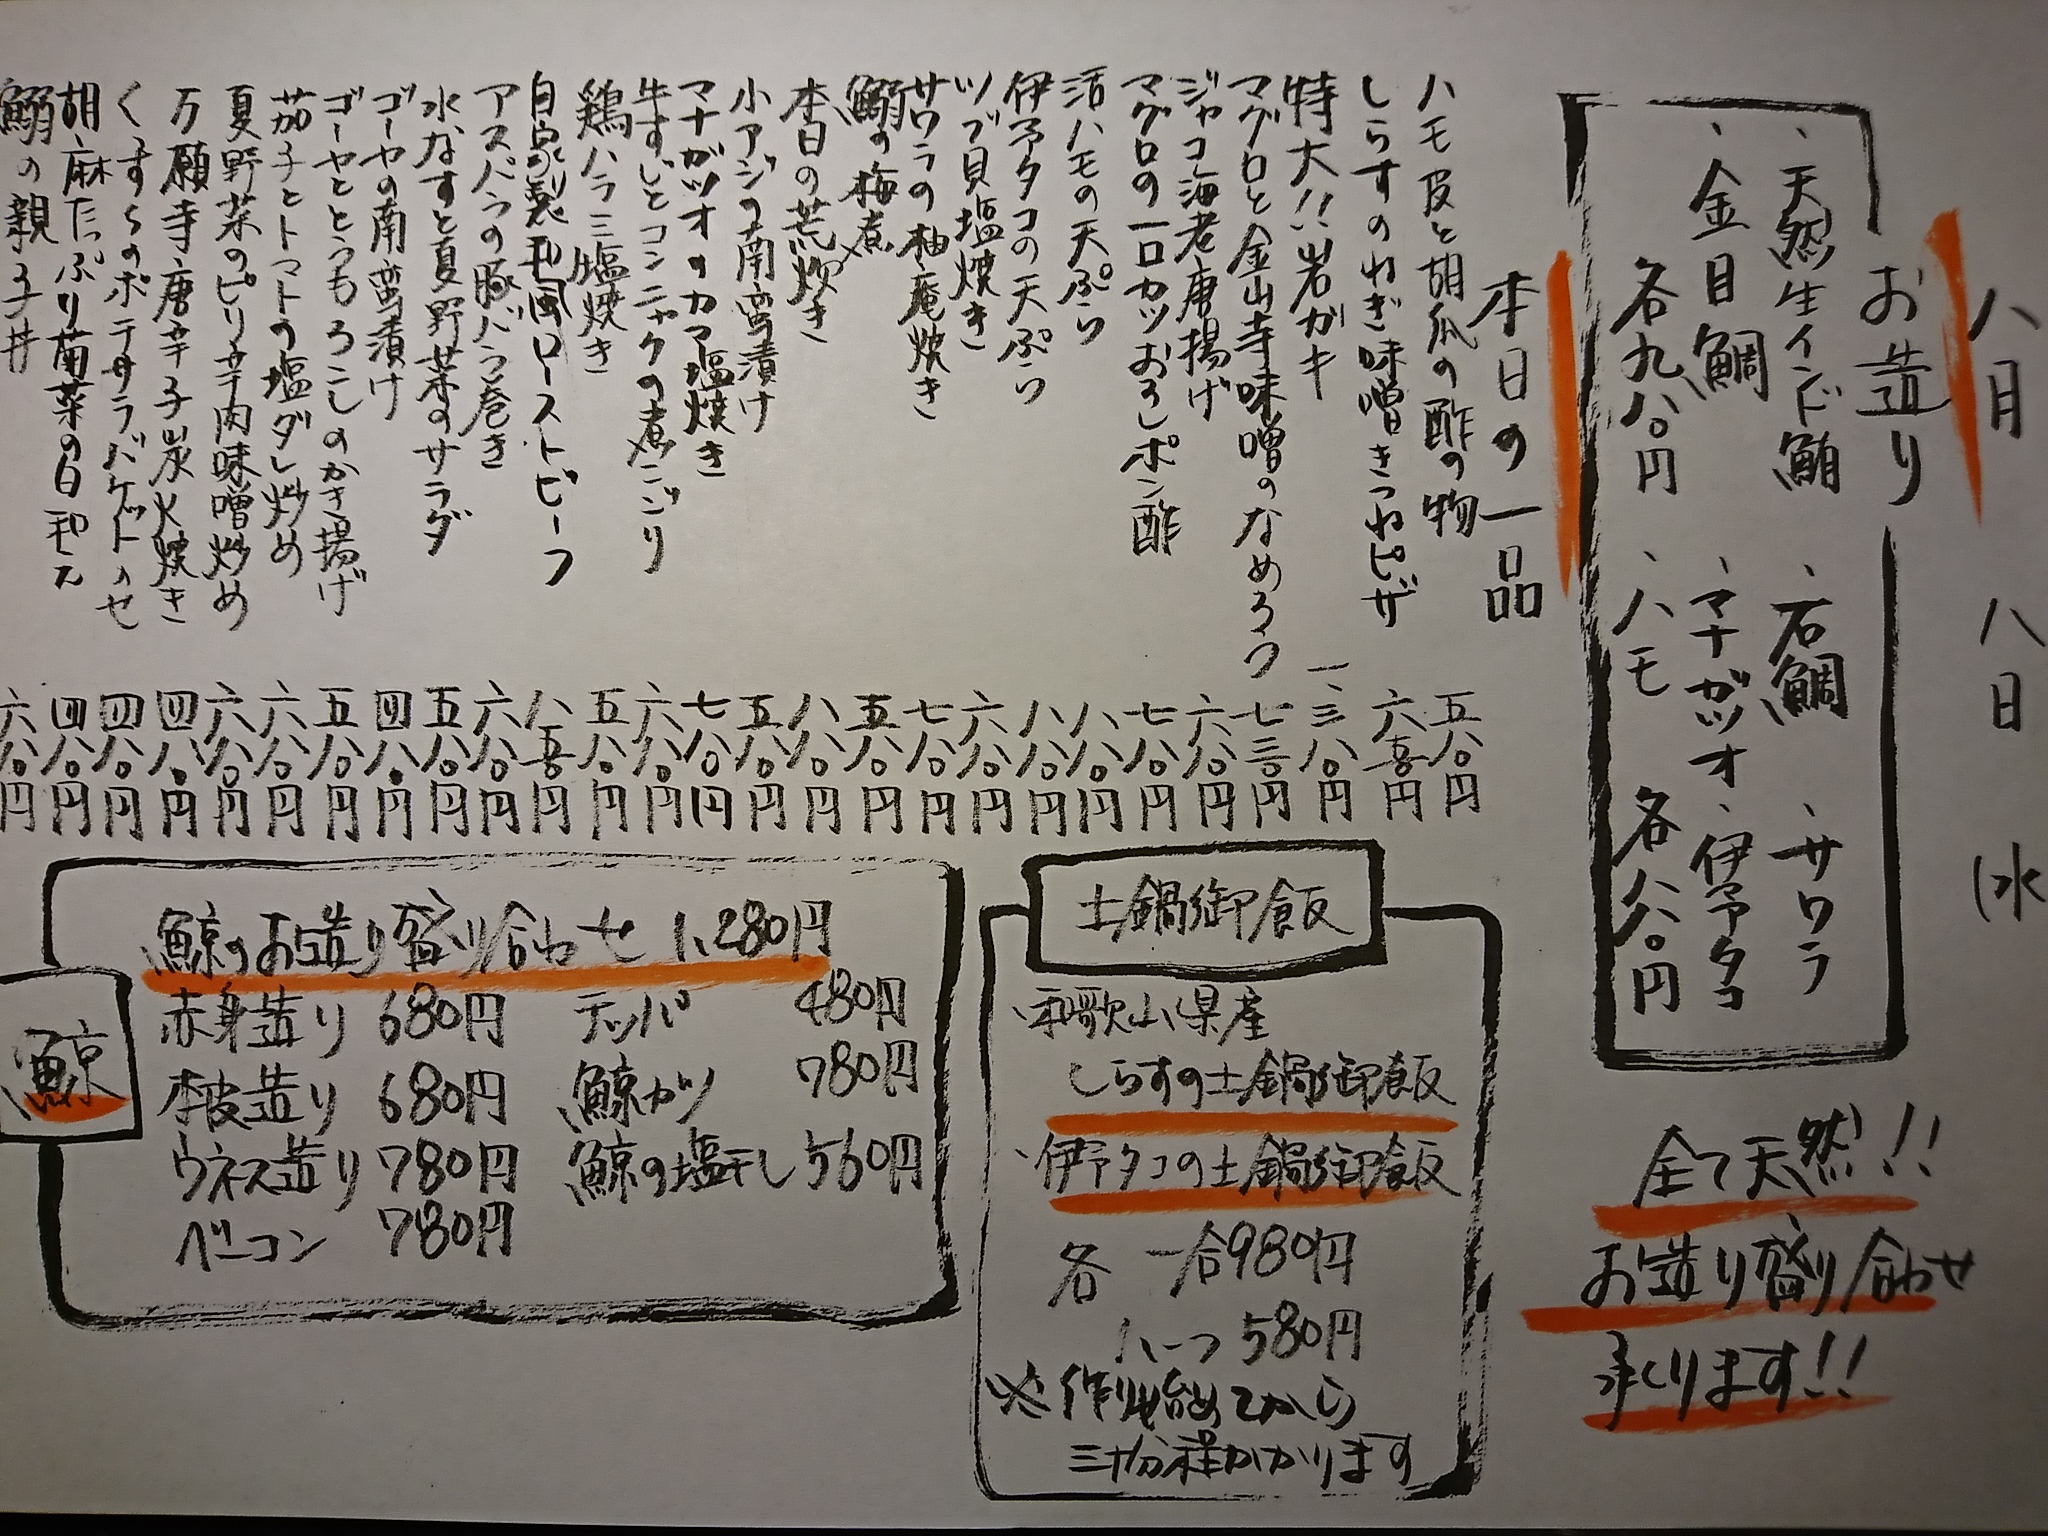 八月 八日 (水
お造り
、天然生インド鮪 、石鯛 、サワラ
、金目鯛 、マナガツオ 、伊予タコ
各九八〇円 、ハモ 各八八〇円
全て天然!!
お造り盛り合わせ
承ります!!
本日の一品
ハモ皮と胡瓜の酢の物 五八〇円
しらすのねぎ味噌きつねピザ 六五〇円
特大!!岩ガキ 一、三八〇円
マグロと金山寺味噌のなめろう 七三〇円
ジャコ海老唐揚げ 六八〇円
マグロの一口カツおろしポン酢 七八〇円
活ハモの天ぷら 八八〇円
伊予タコの天ぷら 八八〇円
ツブ貝塩焼き 六八〇円
サワラの柚庵焼き 七八〇円
鰯の梅煮 五八〇円
本日の荒炊き 八八〇円
小アジの南蛮漬け 五八〇円
マナガツオのカマ塩焼き 七八〇円
牛すじとコンニャクの煮こごり 六八〇円
鶏ハラミ塩焼き 五八〇円
自家製和風ローストビーフ 八五〇円
アスパラの豚バラ巻き 六八〇円
水なすと夏野菜のサラダ 五八〇円
ゴーヤの南蛮漬け 四八〇円
ゴーヤととうもろこしのかき揚げ 五八〇円
茄子とトマトの塩ダレ炒め 六八〇円
夏野菜のピリ辛肉味噌炒め 六八〇円
万願寺唐辛子炭火焼き 四八〇円
くずらのポテサラバケットのせ 四八〇円
胡麻たっぷり菊菜の白和え 四八〇円
鰯の親子丼 六八〇円
土鍋御飯
、和歌山県産
しらすの土鍋御飯
、伊予タコの土鍋御飯
各 一合980円
ハーフ 580円
※作り始めてから
三十分程かかります
鯨
鯨のお造り盛り合わせ 1,280円
赤身造り 680円 テッパ 480円
本皮造り 680円 鯨カツ 780円
ウネス造り 780円 鯨の塩干し 560円
ベーコン 780円